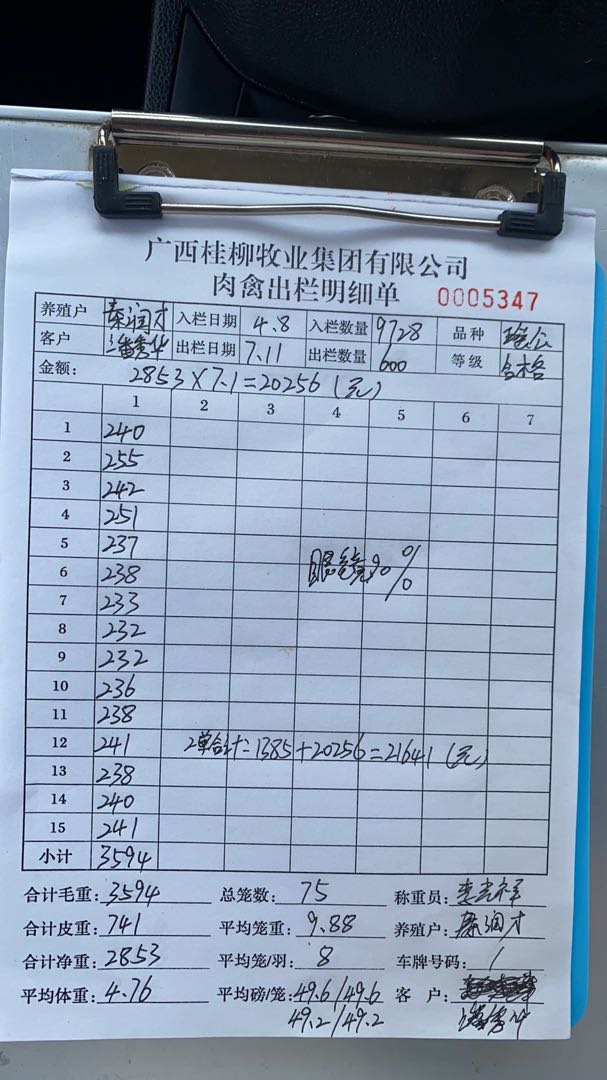 广西桂柳牧业集团有限公司
肉禽出栏明细单 0005347
养殖户 秦润才 入栏日期 4.8 入栏数量 9728 品种
客户 潘秀华 出栏日期 7.11 出栏数量 600 等级 合格
金额: 2853×7.1=20256(元)
1 2 3 4 5 6 7
1 240
2 255
3 242
4 251
5 237
6 238 眼镜90%
7 233
8 232
9 232
10 236
11 238
12 241 2单合计=1385+20256=21641(元)
13 238
14 240
15 241
小计 3594
合计毛重: 3594 总笼数: 75 称重员:
合计皮重: 741 平均笼重: 9.88 养殖户: 秦润才
合计净重: 2853 平均笼/羽: 8 车牌号码: 1
平均体重: 4.76 平均磅/笼: 49.6/49.6 客户:
49.2/49.2 潘秀华